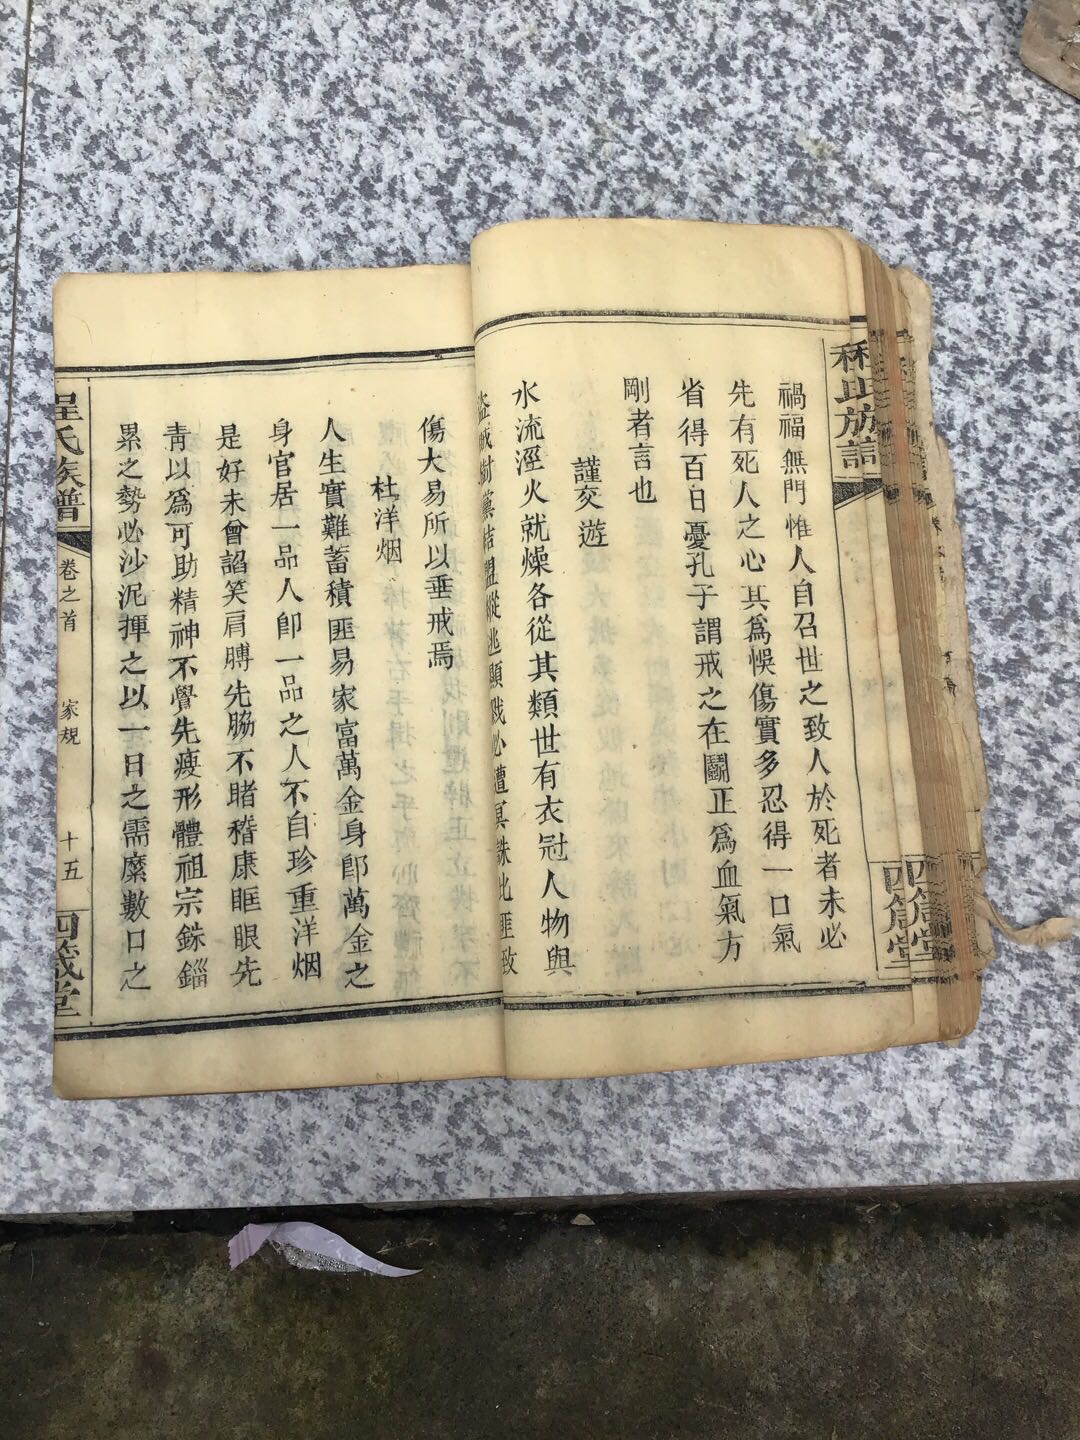 程氏族譜
四箴堂
禍福無門惟人自召世之致人於死者未必
先有死人之心其爲悞傷實多忍得一口氣
省得百日憂孔子謂戒之在鬭正爲血氣方
剛者言也
謹交遊
水流溼火就燥各從其類世有衣冠人物與
盜賊樹黨結盟縱逃顯戮必遭冥誅比匪致
傷大易所以垂戒焉
杜洋烟
人生實難蓄積匪易家富萬金身卽萬金之
身官居一品人卽一品之人不自珍重洋烟
是好未曾諂笑肩膊先脇不賭稽康眶眼先
青以爲可助精神不覺先瘦形體祖宗銖錙
累之勢必沙泥揮之以一日之需糜數口之
程氏族譜
卷之首
家規
十五
四箴堂